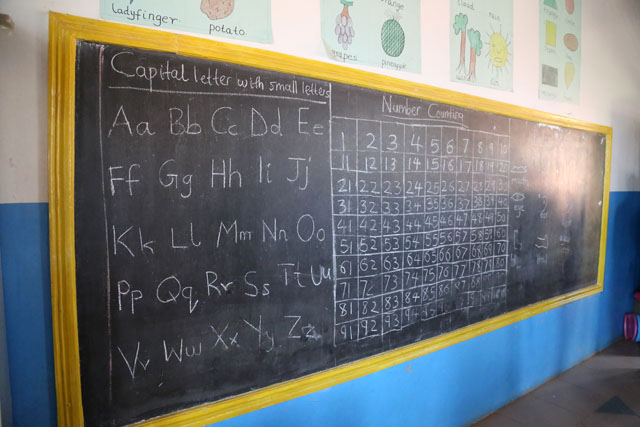 ladyfinger
potato
orange
grapes
pineapple
cloud
rain
sun
Capital letter with small letters
Aa Bb Cc Dd Ee
Ff Gg Hh Ii Jj
Kk Ll Mm Nn Oo
Pp Qq Rr Ss Tt Uu
Vv Ww Xx Yy Zz
Number Counting
1 2 3 4 5 6 7 8 9 10
11 12 13 14 15 16 17 18 19 20
21 22 23 24 25 26 27 28 29 30
31 32 33 34 35 36 37 38 39 40
41 42 43 44 45 46 47 48 49 50
51 52 53 54 55 56 57 58 59 60
61 62 63 64 65 66 67 68 69 70
71 72 73 74 75 76 77 78 79 80
81 82 83 84 85 86 87 88
91 92 93 94 95